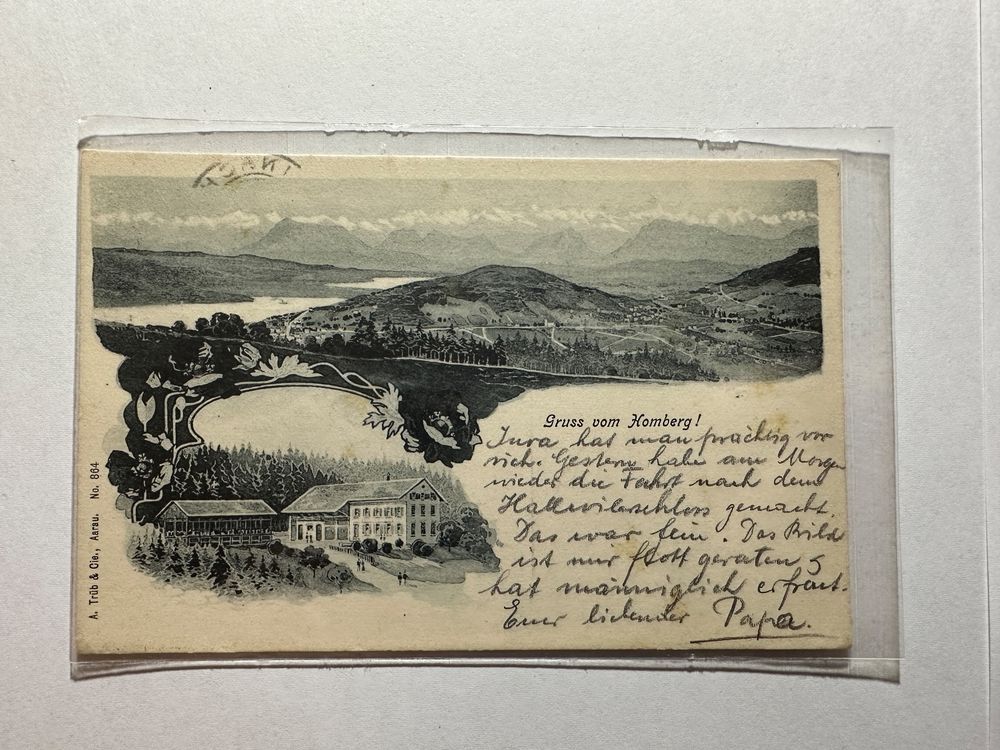 Gruss vom Homberg!
Jura hat man prächtig vor
sich. Gestern habe am Morgen
wieder die Fahrt nach dem
Hallwilerschloss gemacht.
Das war fein. Das Bild
ist mir flott geraten &
hat männiglich erfreut.
Euer liebender Papa.
A. Trüb & Cie., Aarau. No. 864